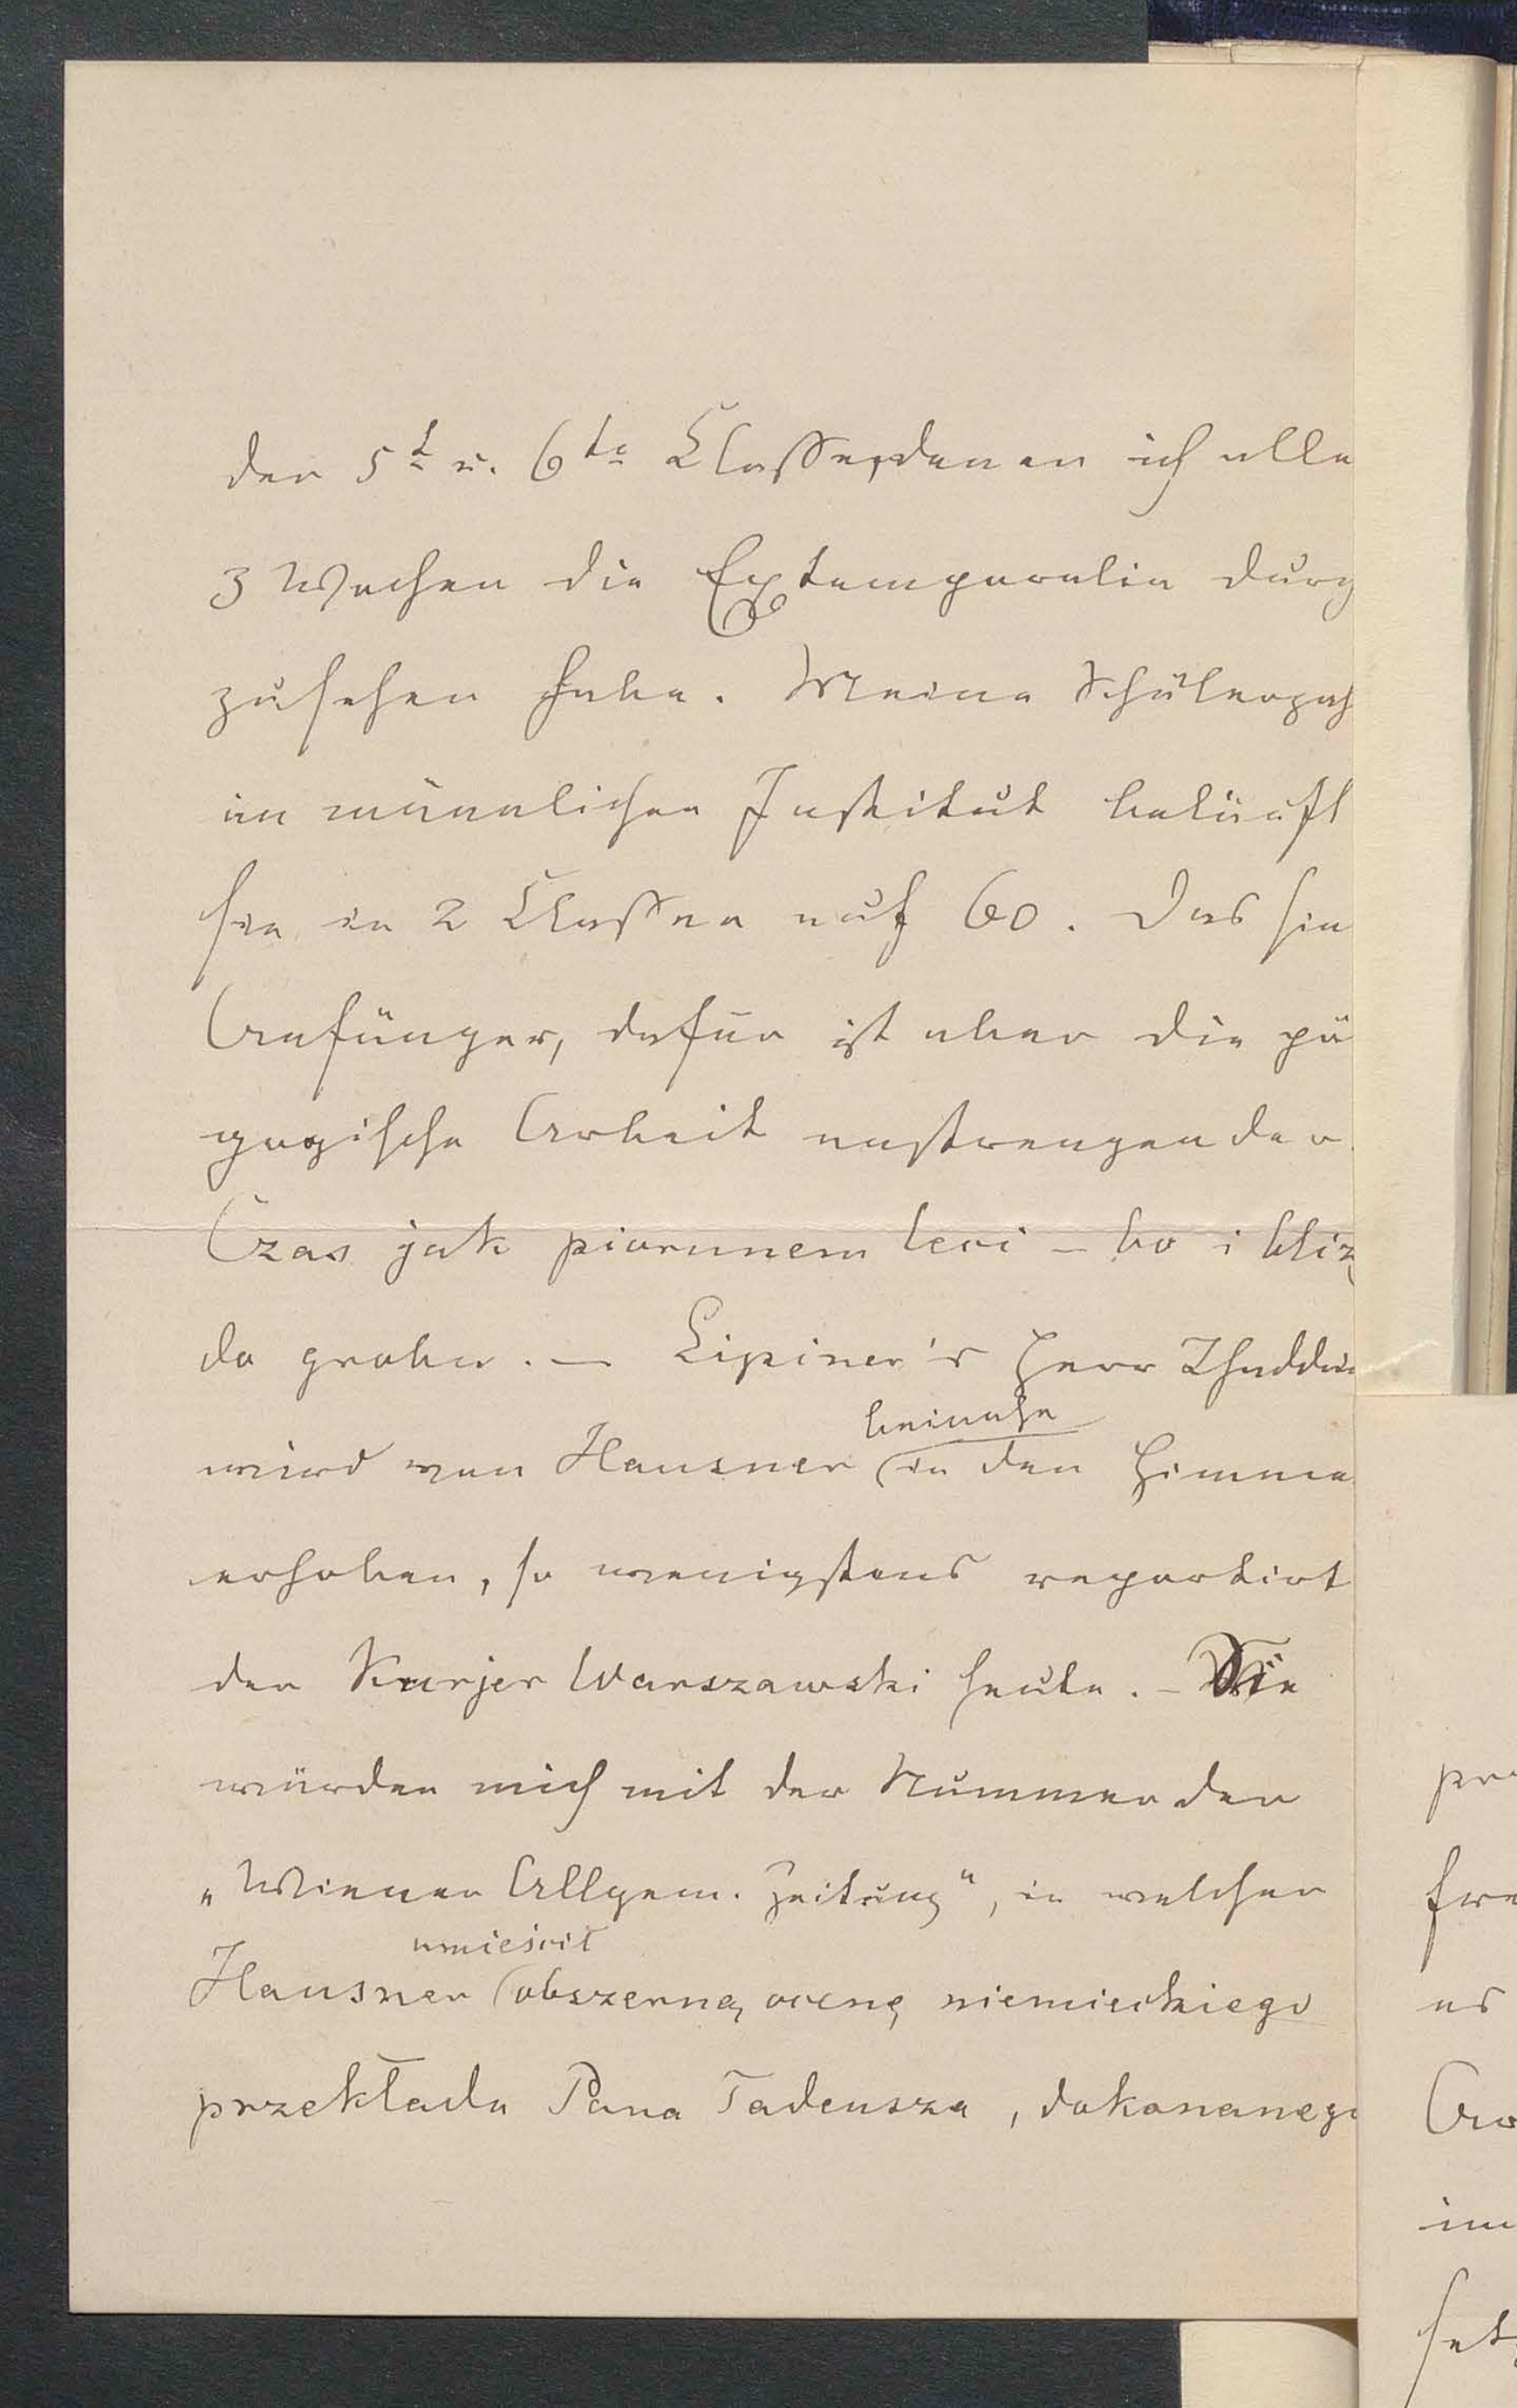 der 5t u. 6te Classe, denen ich alle
3 Wochen die Extemporalia durch
zusehen habe. Meine Schülerzah
im männlichen Institut beläuft
sie in 2 Classen auf 60. Das sin
Anfänger, dafür ist aber die pä
gogische Arbeit anstrengender.
Czas jak piorunem leci – bo i bliz
do grobu. — Lipiner's Herr Thaddäu
beinahe
wird von Hausner in den Himme
erhoben, so wenigstens reportirt
der Kurjer Warszawski heute. – Sie
würden mich mit der Nummer der
„Wiener Allgem. Zeitung", in welcher
umieścił
Hausner obszerną ocenę niemieckiego
przekładu Pana Tadeusza, dokonanego
pr
fre
es
Ar
im
set